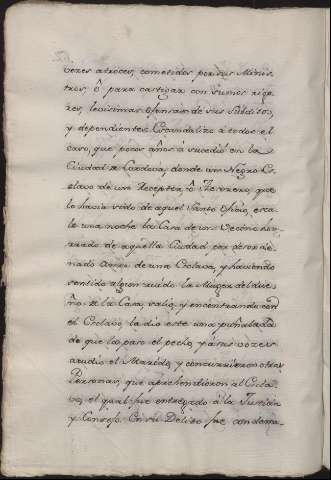 cesos atroces, cometidos por sus Minis
tros, ô para castigar con sumos rigo
res, levisimas ofensas de sus Subditos,
y dependientes. Escandalizo à todos el
caso, que pocos años à sucedió en la
Ciudad de Cordova, donde un Negro Es
clavo de un Receptor, ô Thesorero, que
lo havia sido de aquel Santo Oficio, esca
lo una noche la Casa de un Vecino hon
rrado de aquella Ciudad por desorde
nado Amor de una Esclava, y haviendo
sentido algun ruido la Muger del due
ño de la Casa, salio, y encontrando con
el Esclavo, la dio este una puñalada
de que la paso el pecho, y à sus voces
acudio el Marido, y concurrieron otras
Personas, que aprehendieron al Escla
vo, el qual fue entregado à la Justicia,
y Confesó. En su Delito fue condena-